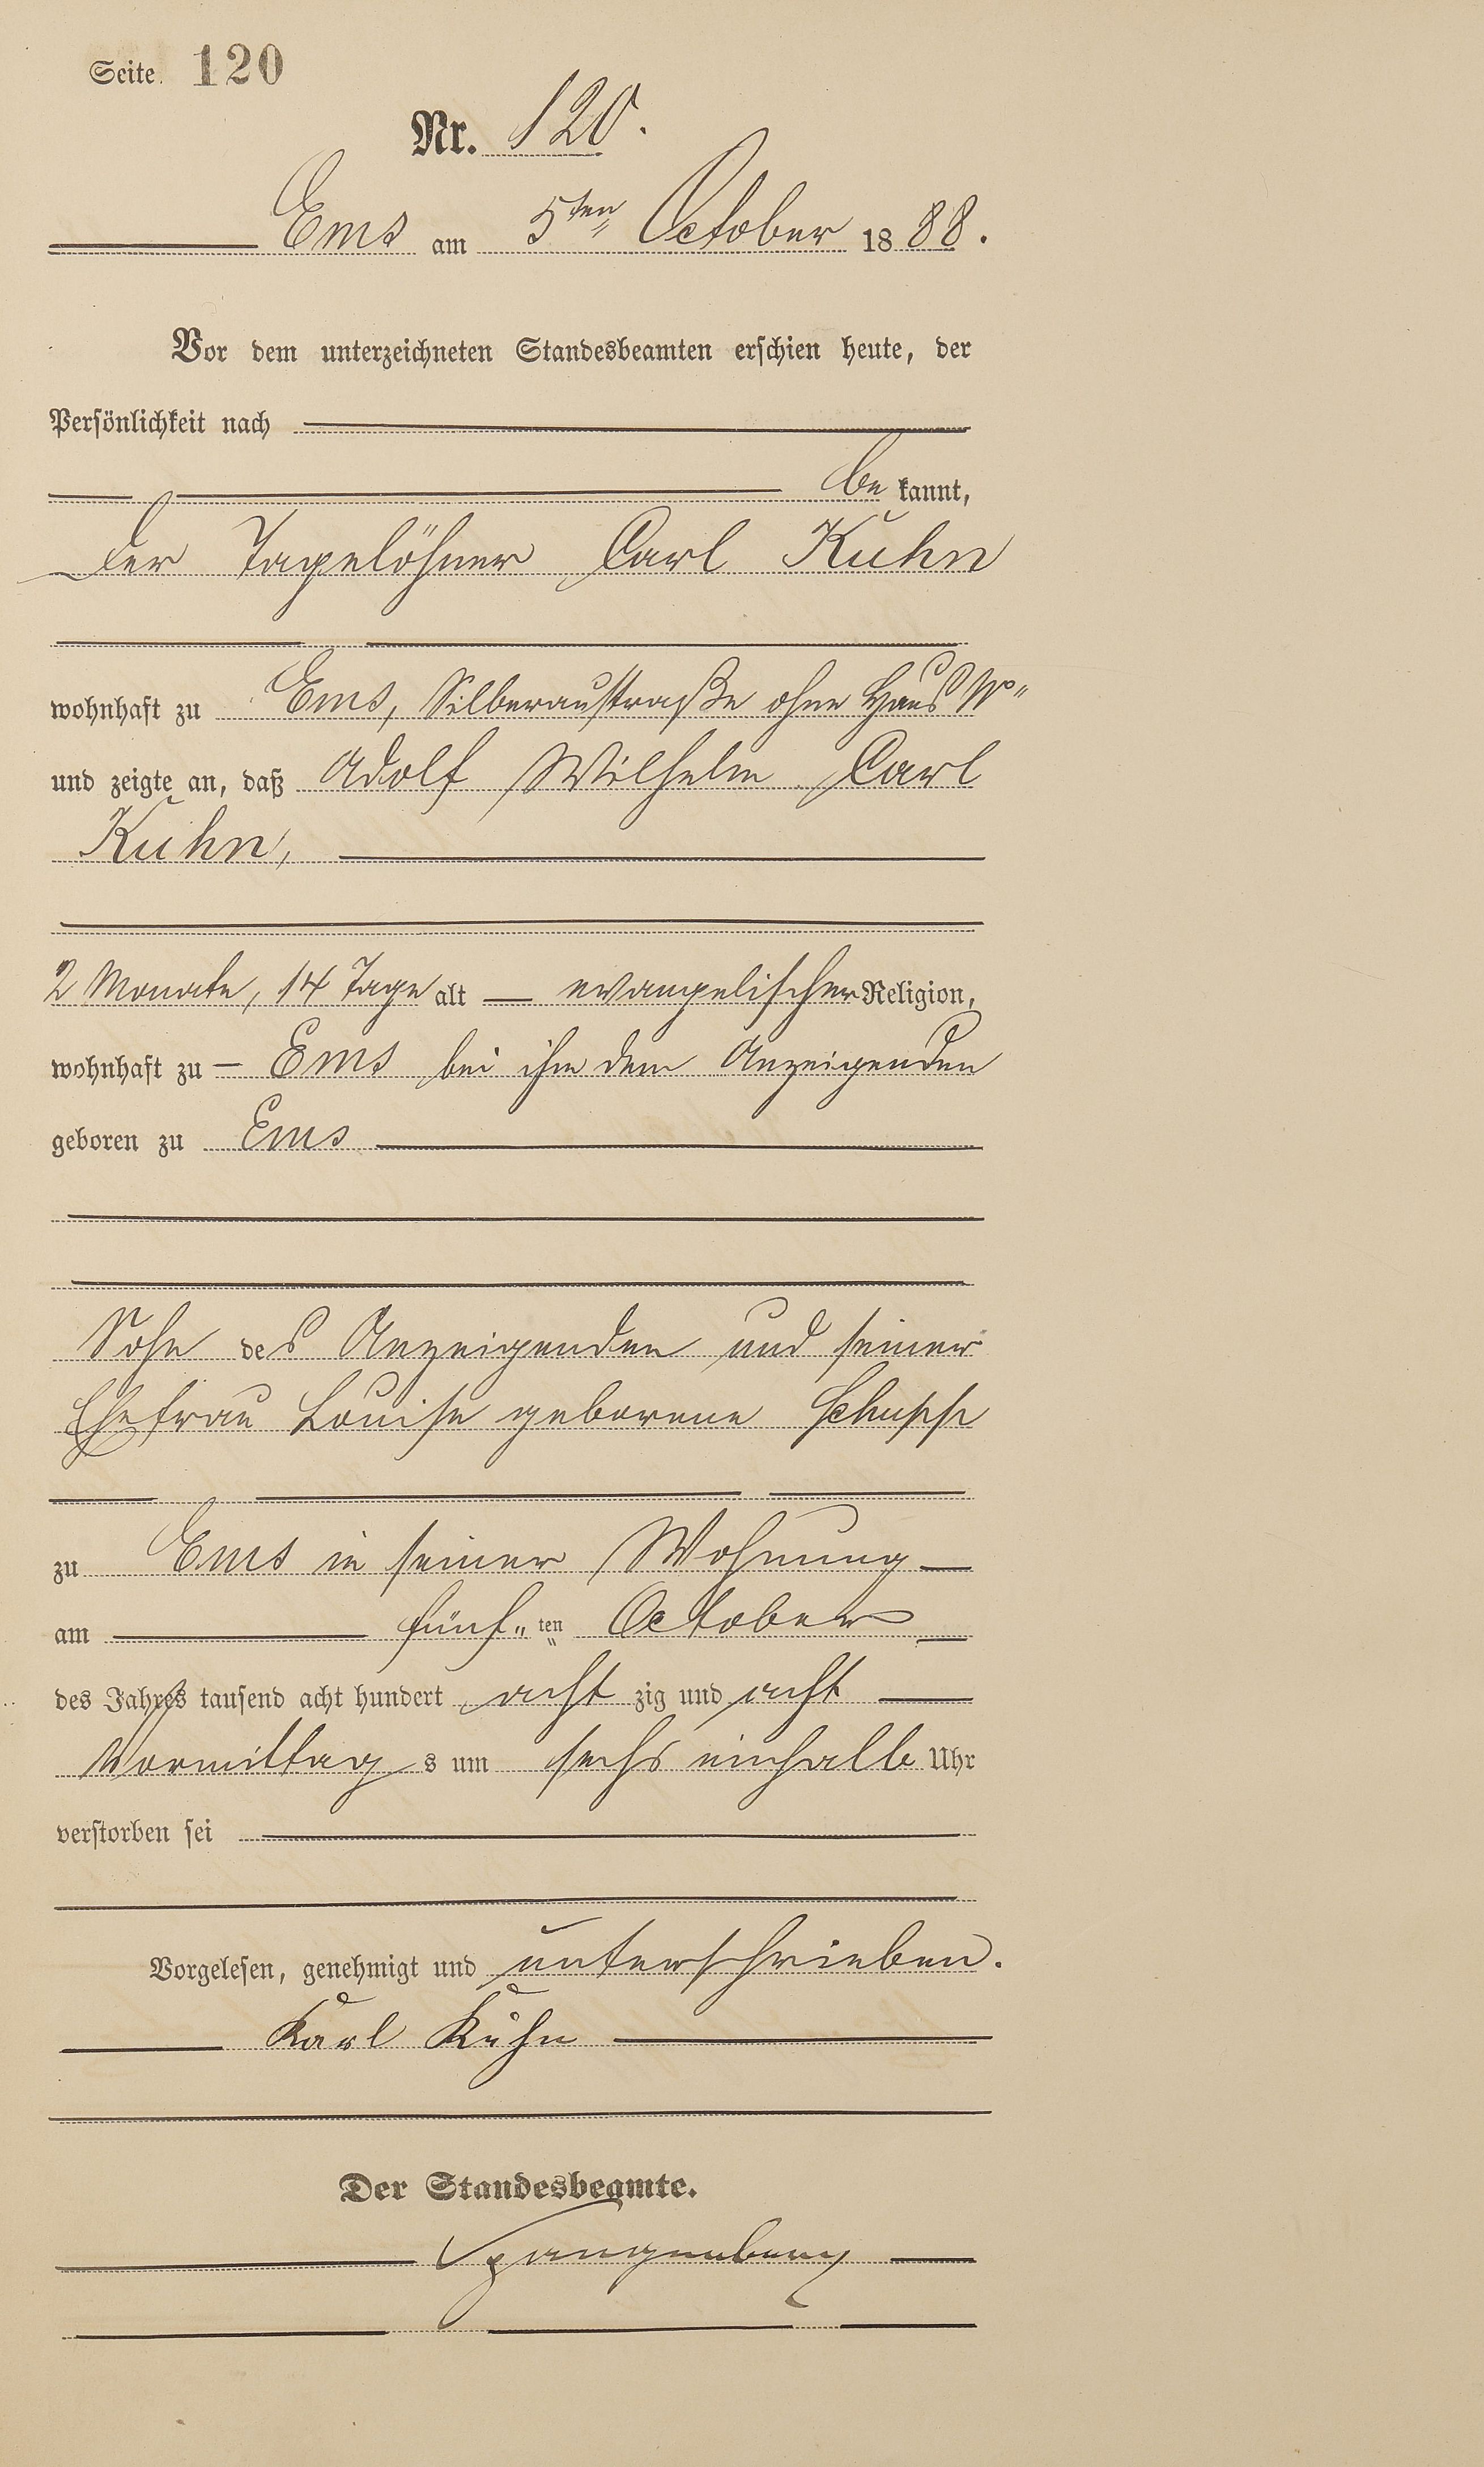 Seite 120
Nr. 120.
Ems am 5ten October 1888.
Vor dem unterzeichneten Standesbeamten erschien heute, der
Persönlichkeit nach
be kannt,
der Tagelöhner Carl Kuhn
wohnhaft zu Ems, Silberaustraße ohne Haus No
und zeigte an, daß Adolf Wilhelm Carl
Kuhn,
2 Monate, 14 Tage alt evangelischer Religion,
wohnhaft zu Ems bei ihm dem Anzeigenden
geboren zu Ems
Sohn des Anzeigenden und seiner
Ehefrau Louise geborene Schupp
zu Ems in seiner Wohnung
am fünf ten October
des Jahres tausend acht hundert acht zig und acht
Vormittag s um sechs einhalb Uhr
verstorben sei
Vorgelesen, genehmigt und unterschrieben.
Karl Kuhn
Der Standesbeamte.
Spangenberg